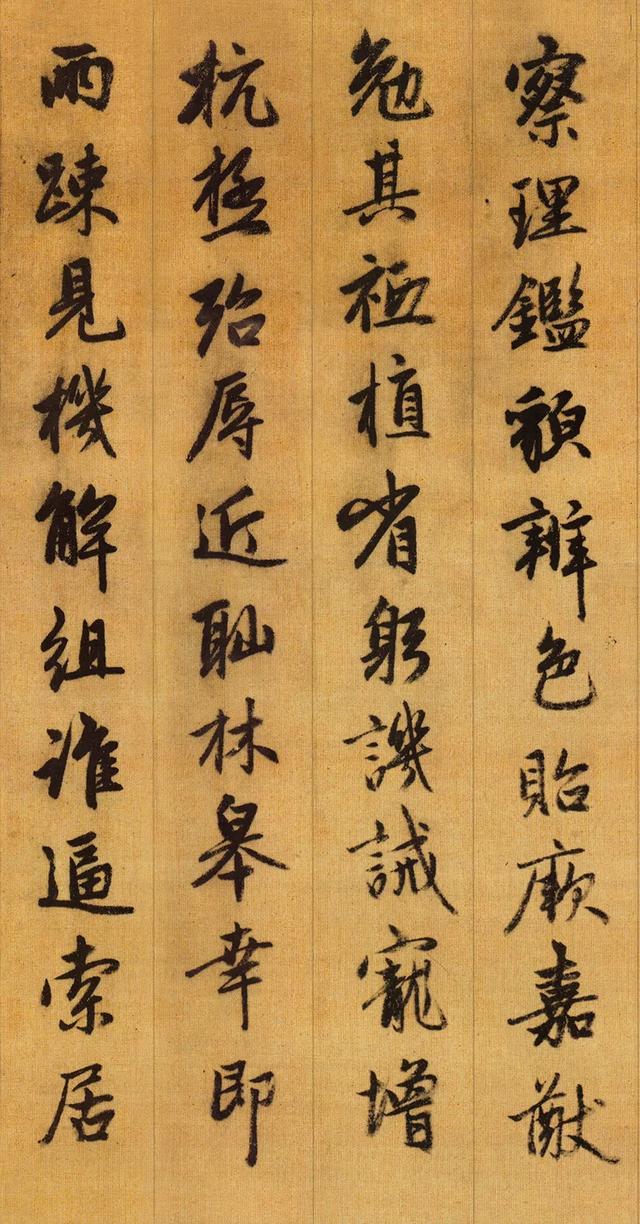 察理鑑貌辨色貽厥嘉猷
勉其祗植省躬譏誡寵增
杭極殆辱近恥林皋幸即
兩疎見機解組誰逼索居